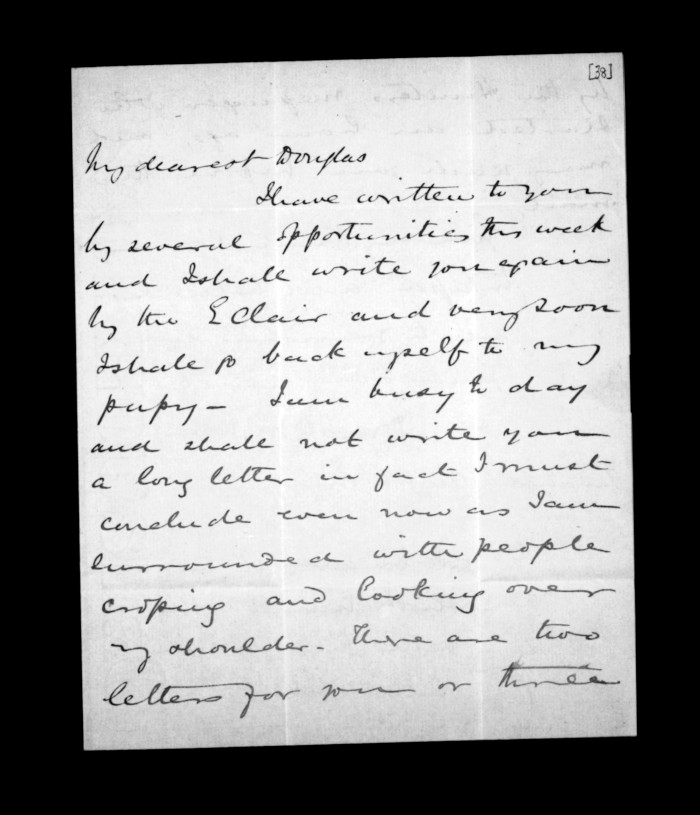 [38]
My dearest Douglas
I have written to you
by several opportunities this week
and I shall write you again
by the E Clair and very soon
I shall go back myself to my
pupsy – I am busy to day
and shall not write you
a long letter in fact I must
conclude even now as I am
surrounded with people
and looking over
my shoulder – There are two
letters for you or three